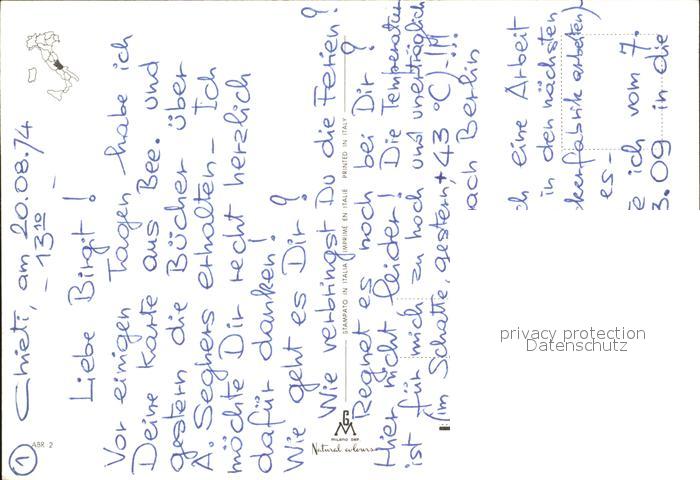 ①
Chieti, am 20.08.74
- 13¹⁰ -
Liebe Birgit!
Vor einigen Tagen habe ich
Deine Karte aus Bee. und
gestern die Bücher über
A. Seghers erhalten - Ich
möchte Dir recht herzlich
dafür danken!
Wie geht es Dir?
Wie verbringst Du die Ferien?
Regnet es noch bei Dir?
Hier nicht leider! Die Temperatur
ist für mich zu hoch und unerträglich
(im Schatte, gestern, +43 °C) - !!!
ach Berlin
h eine Arbeit
in den nächsten
kerfabrik arbeiten)
es -
e ich vom 7.
3.09 in die
ABR 2
STAMPATO IN ITALIA IMPRIMÉ EN ITALIE PRINTED IN ITALY
GM
MILANO DEP.
Natural colours
privacy protection
Datenschutz